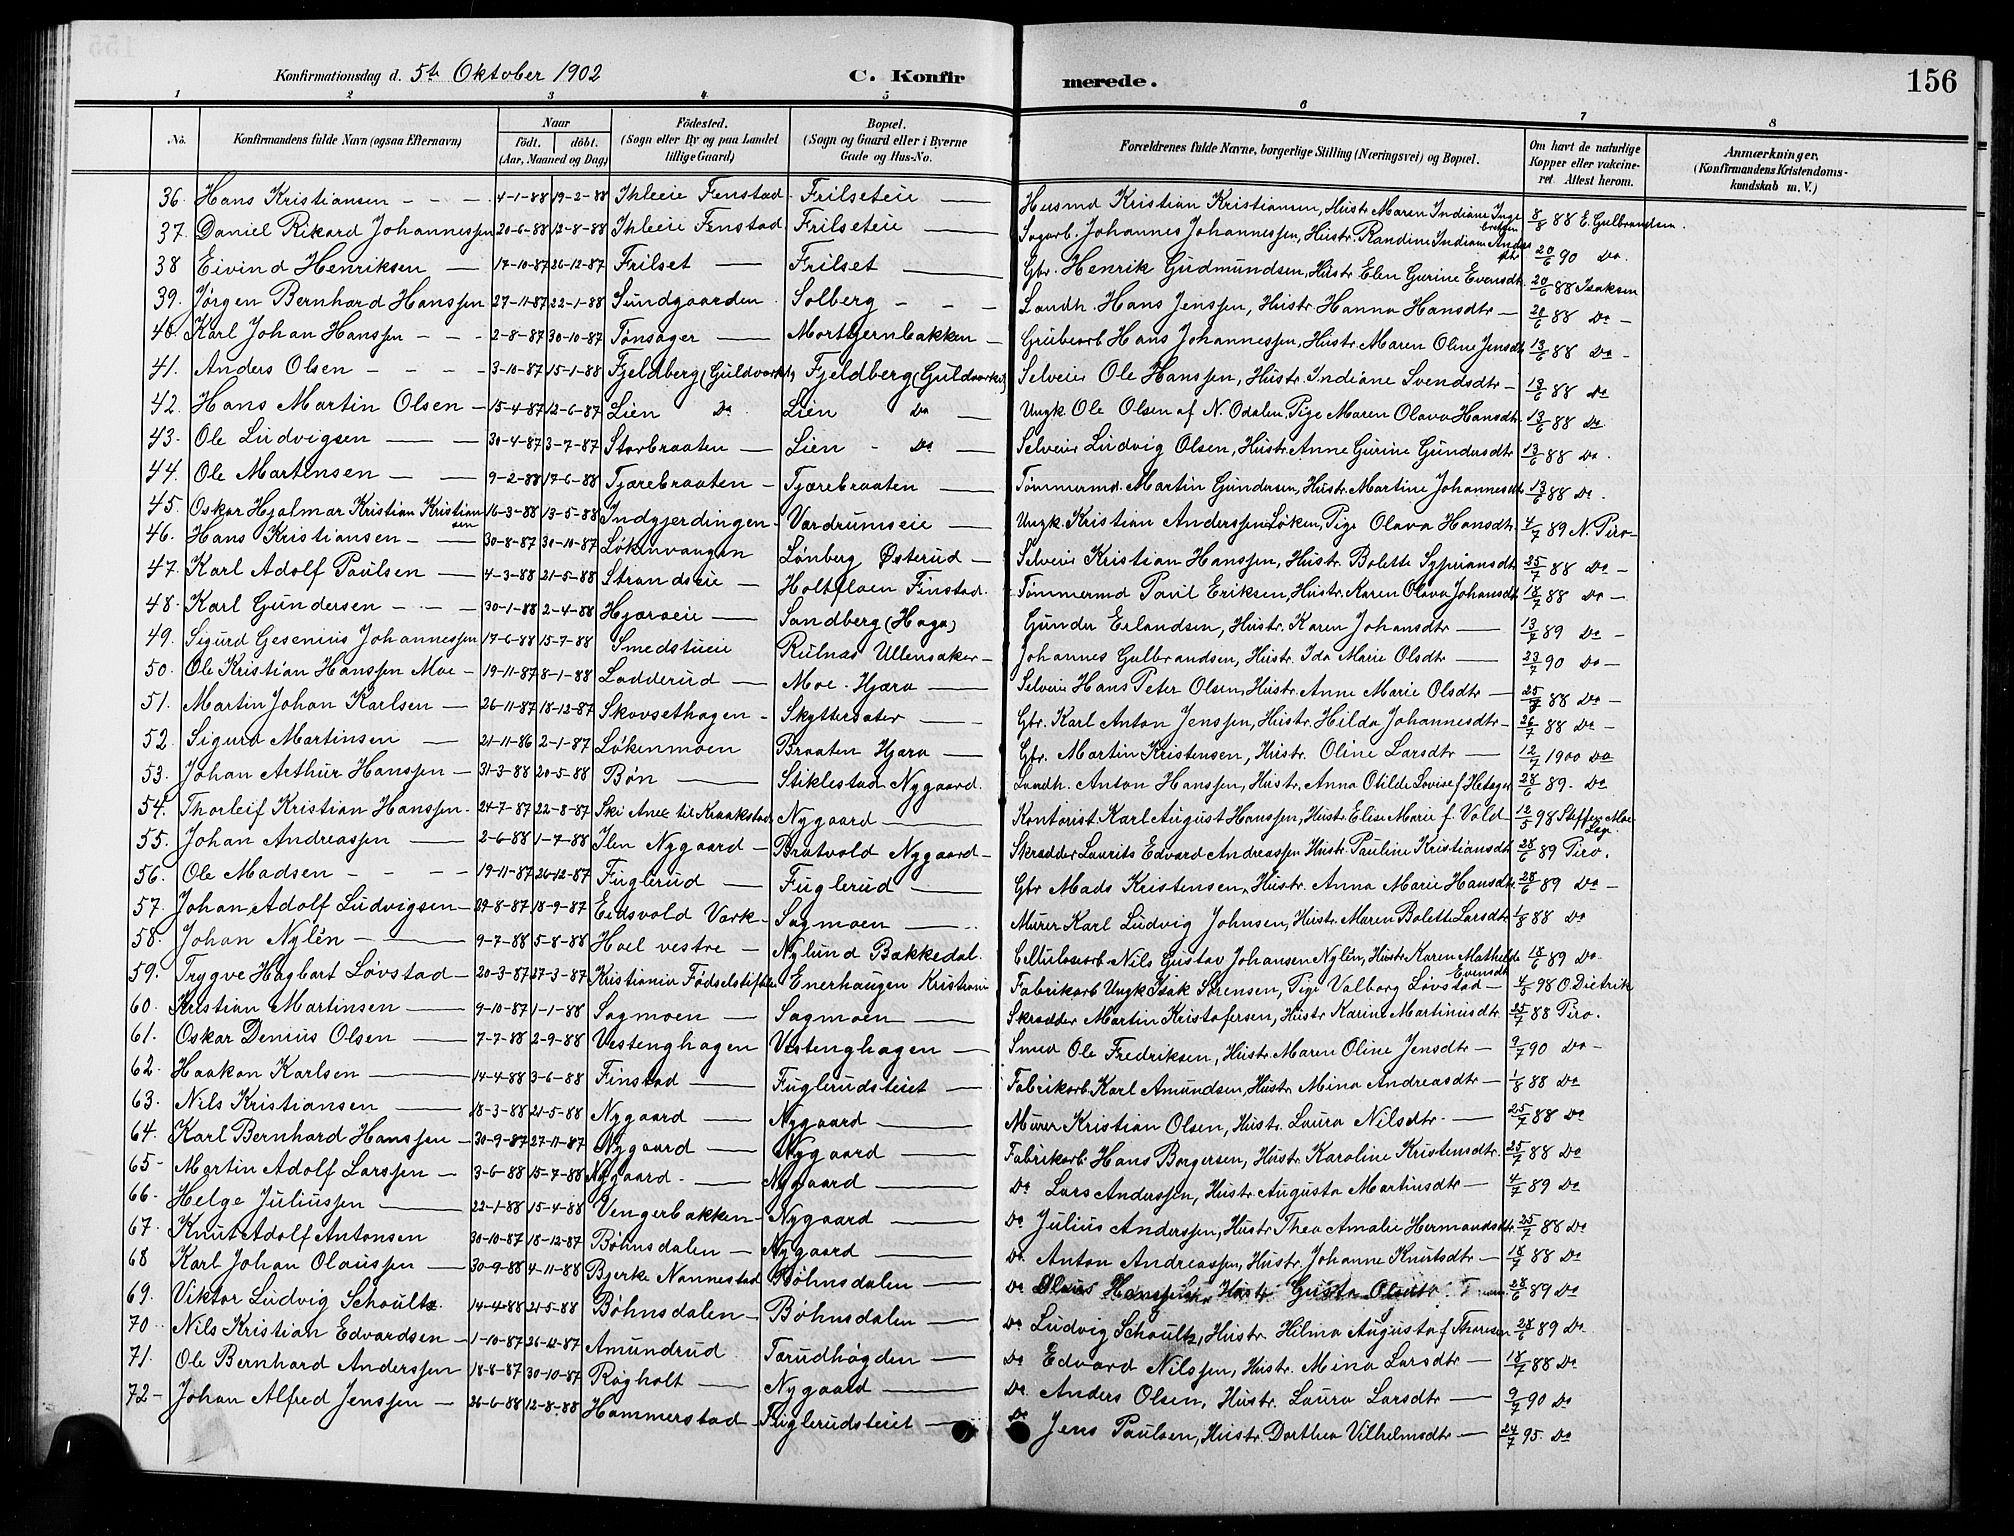 156
Konfirmationsdag d. 5te Oktober 1902 C. Konfirmerede.
1 2 3 4 5 6 7 8
No. Konfirmandens fulde Navn (ogsaa Efternavn) Naar födt. döbt. (Aar, Maaned og Dag) Födested. (Sogn eller By og paa Landet tillige Gaard) Bopæl. (Sogn og Gaard eller i Byerne Gade og Hus-No. Forældrenes fulde Navne, borgerlige Stilling (Næringsvei) og Bopæl. Om havt de naturlige Kopper eller vakcineret. Attest herom. Anmærkninger. (Konfirmandens Kristendomskundskab m. V.)
36. Hans Kristiansen 4-1-88 19-2-88 Ihleeie Fenstad Frilseteie Husmd Kristian Kristiansen, Hustr. Maren Indiane Ingebretsen 8/8 88 E. Gulbrandsen.
37. Daniel Rikard Johannessen 20-6-88 12-8-88 Ihleeie Fenstad Frilseteie Sagarb. Johannes Johannessen, Hustr. Randine Indiane Andersdtr 20/6 90 Do.
38 Eivind Henriksen 17-10-87 26-12-87 Frilset Frilset Gbr. Henrik Gudmundsen, Hustr. Elen Gurine Evensdtr. 20/6 88 Isaksen
39. Jørgen Bernhard Hanssen 27-11-87 22-1-88 Sundgaarden Solberg Landh. Hans Jenssen, Hustr. Hanna Hansdtr 20/6 88 Do
40. Karl Johan Hanssen 2-8-87 30-10-87 Tønsager Morttjernbakken Grubearb Hans Johannessen, Hustr. Maren Oline Jensdtr 13/6 88 Do
41. Anders Olsen 3-10-87 15-1-88 Fjeldberg (Guldverket) Fjeldberg (Guldverket) Selveier Ole Hanssen, Hustr. Indiane Svendsdtr 13/6 88 Do
42. Hans Martin Olsen 15-4-87 12-6-87 Lien Do Lien Do Ungk. Ole Olsen af N. Odalen, Pige Maren Olava Hansdtr 13/6 88 Do
43. Ole Ludvigsen 30-4-87 3-7-87 Storbraaten Lien Do Selveier Ludvig Olsen, Hustr. Anne Gurine Gundersdtr 13/6 88 Do.
44. Ole Martinsen 9-2-88 17-6-88 Tjærebraaten Tjærebraaten Tømmermd. Martin Gundersen, Hustr. Martine Johannesdtr 13/6 88 Do.
45. Oskar Hjalmar Kristian Kristiansen 16-3-88 13-5-88 Indgjerdingen Vardrumseie Ungk. Kristian Anderssen Løken, Pige Olava Hansdtr. 4/7 89 N. Piro
46. Hans Kristiansen 30-8-87 30-10-87 Løkenvangen Lønberg Østerud Selveier Kristian Hanssen, Hustr. Bolette Sypriansdtr 25/7 88 Do
47. Karl Adolf Paulsen 4-3-88 21-5-88 Strandseie Holtfloen Finstad. Tømmermd Paul Eriksen, Hustr. Karen Olava Johansdtr 18/7 88 Do
48. Karl Gundersen 30-1-88 2-4-88 Hjæraeie Sandberg (Haga) Gunder Erlandsen, Hustr. Karen Johansdtr 13/7 89 Do
49. Sigurd Gesenius Johannessen 17-6-88 15-7-88 Smedstueie Rulnas Ullensaker Johannes Gulbrandsen, Hustr. Ida Marie Olsdtr 23/7 90 Do
50. Ole Kristian Hanssen Moe 19-11-87 8-1-88 Ladderud Moe Hjæra Selveier Hans Peter Olsen, Hustr. Anne Marie Olsdtr 25/7 88 Do
51. Martin Johan Karlsen 26-11-87 18-12-87 Skovsethagen Skyttersæter Gbr. Karl Anton Jenssen, Hustr. Hilda Johannesdtr 26/7 88 Do
52. Sigurd Martinsen 21-11-86 2-1-87 Løkenmoen Braaten Hjæra Gbr. Martin Kristensen, Hustr. Oline Larsdtr 12/7 1900 Do
53. Johan Arthur Hanssen 31-3-88 20-5-88 Bøn Stiklestad Nygaard. Landh. Anton Hanssen, Hustr. Anna Otilde Lovise f. Hetager 28/6 89. Do
54. Thorleif Kristian Hanssen 24-7-87 22-8-87 Ski Anex til Kraakstad Nygaard Kontorist Karl August Hanssen, Hustr. Elise Marie f. Vold 12/5 98 Steffen Moe Læge
55. Johan Andreassen 2-6-88 1-7-88 Ilen Nygaard Bratvold Nygaard Skrædder Laurits Edvard Andreassen Hustr. Pauline Kristiansdtr 28/6 89 Piro.
56. Ole Madsen 19-11-87 26-12-87 Fuglerud Fuglerud Gbr Mads Kristensen, Hustr. Anna Marie Hansdtr. 28/6 89 Do
57. Johan Adolf Ludvigsen 29-8-87 18-9-87 Eidsvold Værk Sagmoen Murer Karl Ludvig Johnsen, Hustr. Maren Bolette Larsdtr 1/8 88 Do
58. Johan Nylén 9-7-88 5-8-88 Hoel vestre Nylund Bakkedal. Celluloseorb Nils Gustav Johansen Nylén, Hustr. Karen Mathilde Evensdtr 18/6 89 Do.
59. Trygve Hagbart Løvstad 20-3-87 27-3-87 Kristiania Fødselsstiftelse Enerhaugen Kristiania Fabrikarb. Ungk. Isak Sørensen, Pige Valborg Løvstad 4/8 98 O Dietrik
60. Kristian Martinsen 9-10-87 1-1-88 Sagmoen Sagmoen Skrædder Martin Kristofersen, Hustr Karine Martiniusdtr 25/7 88 Piro.
61. Oskar Denius Olsen 7-7-88 2-9-88 Vestenghagen Vestenghagen Smed Ole Fredriksen, Hustr. Maren Oline Jensdtr 9/7 90 Do
62. Haakon Karlsen 14-4-88 3-6-88 Finstad Fuglerudsteiet Fabrikarb. Karl Amundsen, Hustr Mina Andreasdtr 1/8 88 Do
63. Nils Kristiansen 18-3-88 21-5-88 Nygaard Nygaard Murer Kristian Olsen, Hustr. Laura Nilsdtr. 25/7 88 Do
64. Karl Bernhard Hanssen 30-9-87 27-11-87 Nygaard Nygaard Fabrikarb. Hans Borgersen, Hustr. Karoline Kristensdtr. 25/7 88 Do
65. Martin Adolf Larssen 3-6-88 15-7-88 Nygaard. Nygaard Do Lars Anderssen, Hustr. Augusta Martinsdtr 4/7 89 Do
66. Helge Juliussen 22-1-88 15-4-88 Vengerbakken Nygaard Do Julius Anderssen, Hustr Thea Amalie Hermandsdtr. 25/7 88 Do
67. Knut Adolf Antonsen 30-10-87 18-12-87 Bøhnsdalen Nygaard Do. Anton Andreassen, Hustr. Johanne Knutsdtr 18/7 88 Do
68 Karl Johan Olaussen 30-9-88 4-11-88 Bjerke Nannestad Bøhnsdalen Do Olaus Hanssen Hustr. Gusta 28/6 89 Do
69. Viktor Ludvig Schoultz. 14-4-88 21-5-88 Bøhnsdalen Bøhnsdalen Do Ludvig Schoultz, Hustr. Hilma Augusta f. Thoresen 28/6 89 Do
70. Nils Kristian Edvardsen 1-10-87 26-12-87 Amundrud Tærudhøgden Do Edvard Nilssen, Hustr. Mina Larsdtr 18/7 88 Do
71. Ole Bernhard Anderssen 18-8-87 30-10-87 Røgholt Nygaard Do Anders Olsen, Hustr. Laura Larsdtr 9/7 90 Do
72 Johan Alfred Jenssen 26-6-88 12-8-88 Hammerstad Fuglerudsteiet Do Jens Paulsen, Hustr. Dorthea Vilhelmsdtr 24/7 95. Do